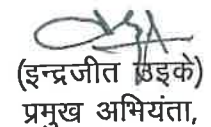 (इन्द्रजीत उइके)
प्रमुख अभियंता,